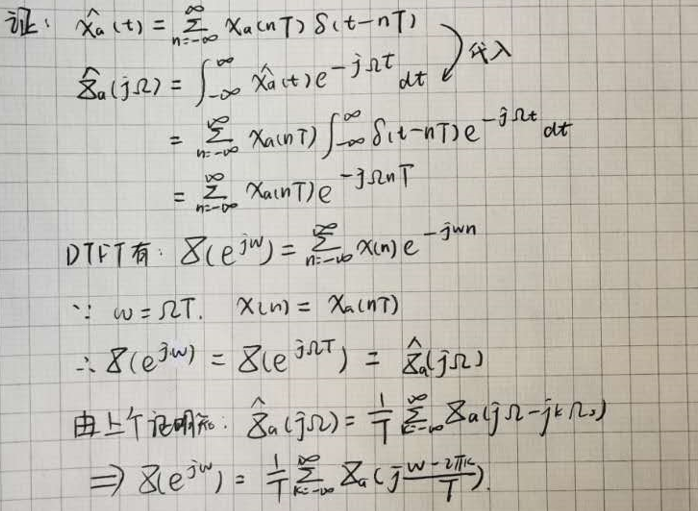 证: x̂a(t) = Σ_{n=-∞}^{∞} xa(nT) δ(t-nT)
代入
X̂a(jΩ) = ∫_{-∞}^{∞} x̂a(t) e^{-jΩt} dt
= Σ_{n=-∞}^{∞} xa(nT) ∫_{-∞}^{∞} δ(t-nT) e^{-jΩt} dt
= Σ_{n=-∞}^{∞} xa(nT) e^{-jΩnT}
DTFT有: X(e^{jw}) = Σ_{n=-∞}^{∞} x(n) e^{-jwn}
∵ w = ΩT. x(n) = xa(nT)
∴ X(e^{jw}) = X(e^{jΩT}) = X̂a(jΩ)
由上个证明知: X̂a(jΩ) = 1/T Σ_{k=-∞}^{∞} Xa(jΩ-jkΩs)
⇒ X(e^{jw}) = 1/T Σ_{k=-∞}^{∞} Xa(j (w-2πk)/T).